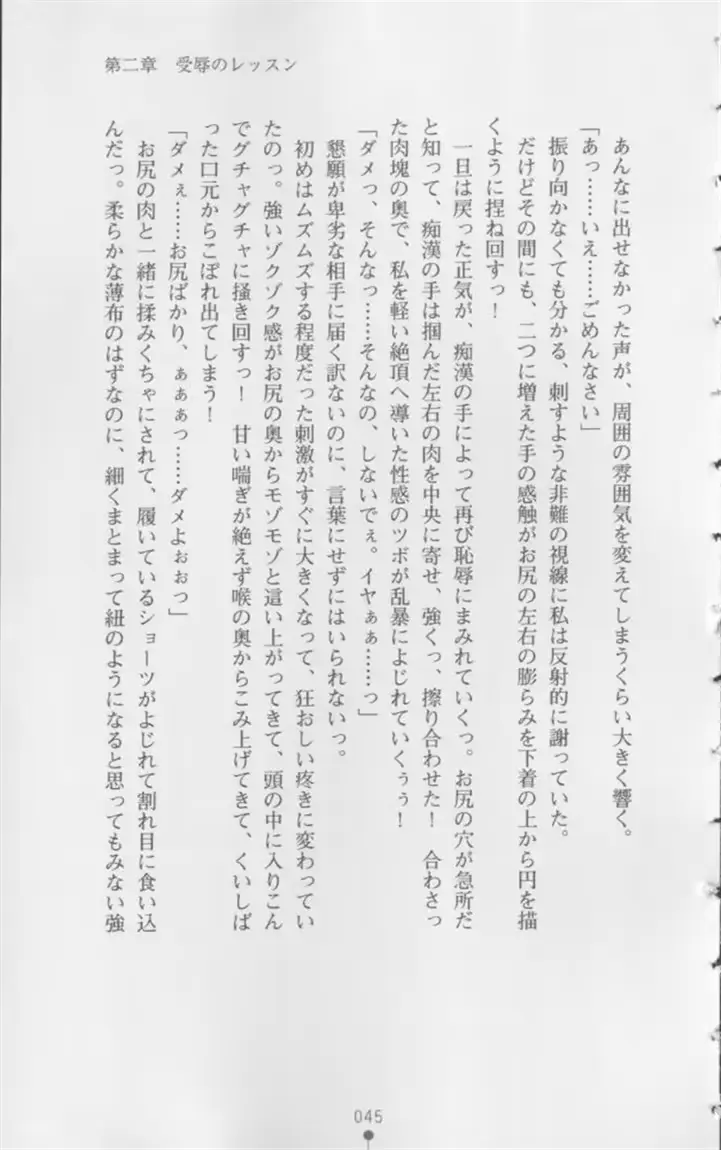 第二章　受辱のレッスン
あんなに出せなかった声が、周囲の雰囲気を変えてしまうくらい大きく響く。
「あっ……いえ……ごめんなさい」
振り向かなくても分かる、刺すような非難の視線に私は反射的に謝っていた。
だけどその間にも、二つに増えた手の感触がお尻の左右の膨らみを下着の上から円を描
くように捏ね回すっ！
一旦は戻った正気が、痴漢の手によって再び恥辱にまみれていくっ。お尻の穴が急所だ
と知って、痴漢の手は掴んだ左右の肉を中央に寄せ、強くっ、擦り合わせた！　合わさっ
た肉塊の奥で、私を軽い絶頂へ導いた性感のツボが乱暴によじれていくぅぅ！
「ダメっ、そんなっ……そんなの、しないでぇ。イヤぁぁ……っ」
懇願が卑劣な相手に届く訳ないのに、言葉にせずにはいられないっ。
初めはムズムズする程度だった刺激がすぐに大きくなって、狂おしい疼きに変わってい
たのっ。強いゾクゾク感がお尻の奥からモゾモゾと這い上がってきて、頭の中に入りこん
でグチャグチャに掻き回すっ！　甘い喘ぎが絶えず喉の奥からこみ上げてきて、くいしば
った口元からこぼれ出てしまう！
「ダメぇ……お尻ばかり、ぁぁぁっ……ダメよぉぉっ」
お尻の肉と一緒に揉みくちゃにされて、履いているショーツがよじれて割れ目に食い込
んだっ。柔らかな薄布のはずなのに、細くまとまって紐のようになると思ってもみない強
045